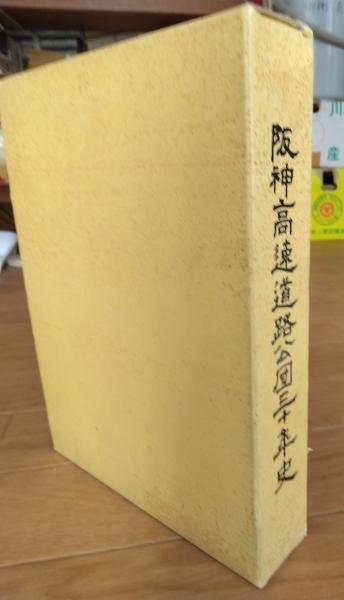 阪神高速道路公団三十年史
川
産